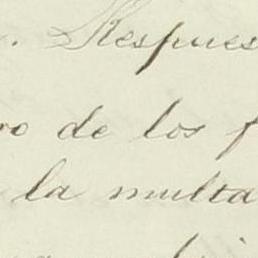 . Respues
ro de los f
la multa